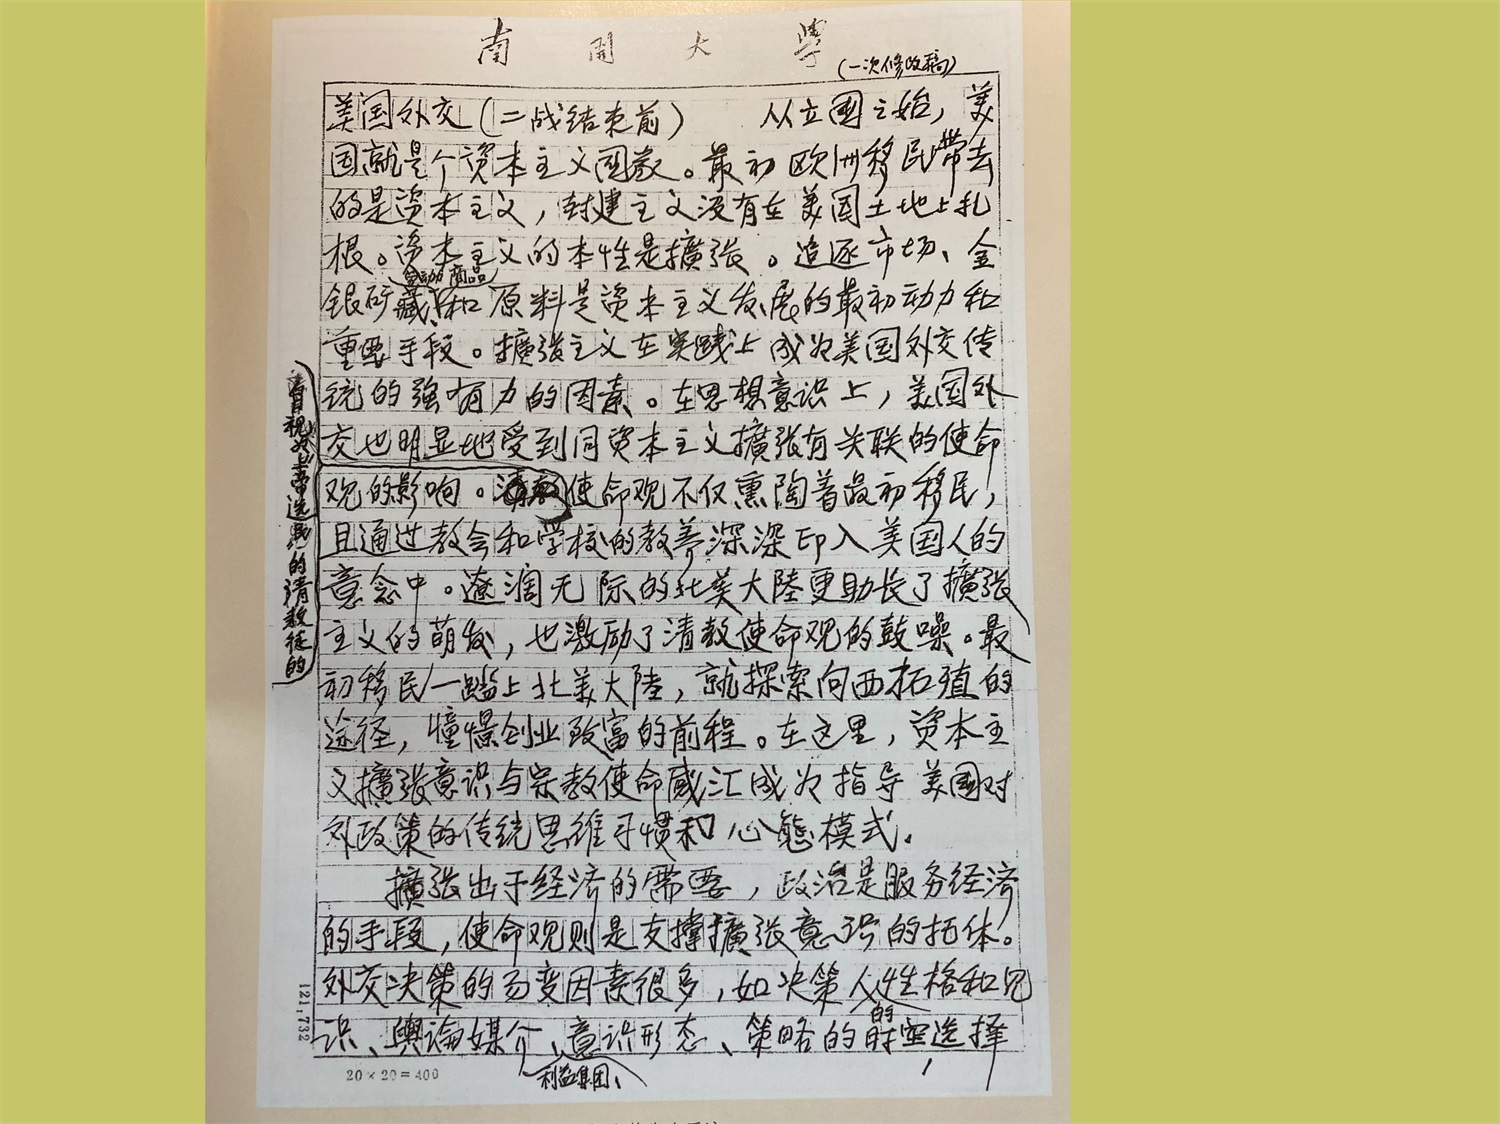 南開大學
(一次修改稿)
美国外交(二战结束前) 从立國之始,美
国就是个资本主义國家。最初欧洲移民带去
的是资本主义,封建主义没有在美国土地上扎
根。资本主义的本性是擴張。追逐市场、金
劳动商品
银矿藏、和原料是资本主义发展的最初动力和
重要手段。擴張主义在实践上成为美国外交传
统的强有力的因素。在思想意识上,美国外
交也明显地受到同资本主义擴張有关联的使命
观的影响。使命观不仅熏陶着最初移民,
自视为上帝选民的清教徒的
且通过教会和学校的教养深深印入美国人的
意念中。遼阔无际的北美大陸更助长了擴張
主义的萌发,也激励了清教使命观的鼓噪。最
初移民一踏上北美大陸,就探索向西拓殖的
途径,憧憬创业致富的前程。在这里,资本主
义擴張意识与宗教使命感汇成为指导美国对
外政策的传统思维习惯和心態模式.
擴張出于经济的需要,政治是服务经济
的手段,使命观则是支撑擴張意识的托体。
外交决策的易变因素很多,如决策人性格和见
的
识、舆論媒介、意识形态、策略的时空选择
利益集团、
121,732
20×20=400